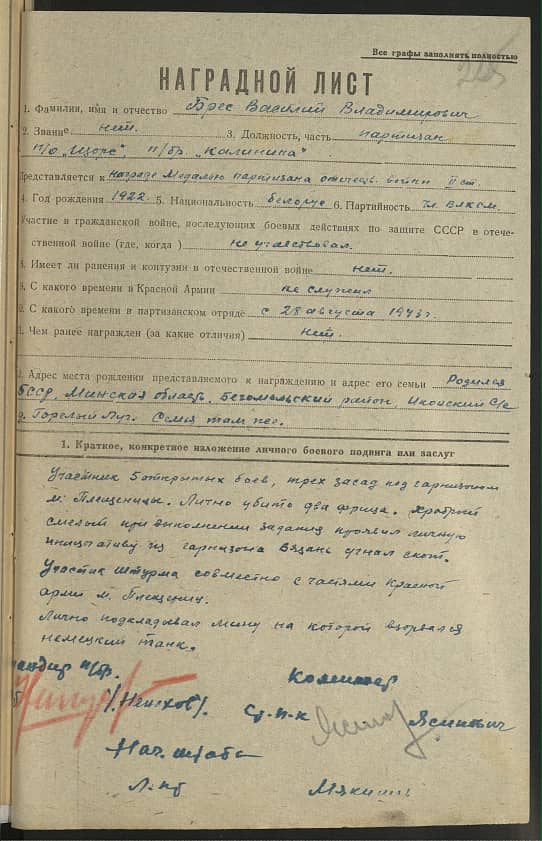 Все графы заполнять полностью
НАГРАДНОЙ ЛИСТ
1. Фамилия, имя и отчество Брес Василий Владимирович
2. Звание нет. 3. Должность, часть партизан
п/о "Щорс", п/бр. "Калинина"
Представляется к награде Медалью партизана отечеств. войны II ст.
4. Год рождения 1922 5. Национальность белорус 6. Партийность чл. ВЛКСМ.
Участие в гражданской войне, последующих боевых действиях по защите СССР в отече-
ственной войне (где, когда) не участвовал.
8. Имеет ли ранения и контузии в отечественной войне нет.
9. С какого времени в Красной Армии не служил
0. С какого времени в партизанском отряде с 28 августа 1943 г.
1. Чем ранее награжден (за какие отличия) нет.
2. Адрес места рождения представляемого к награждению и адрес его семьи Родился
БССР, Минская область, Бегомельский район, Иконский с/с
д. Горелый Луг. Семья там же.
1. Краткое, конкретное изложение личного боевого подвига или заслуг
Участник 5 открытых боев, трех засад под гарнизоном
м. Плещеницы. Лично убито два фрица. Храбрый
смелый при выполнении задания проявил личную
инициативу из гарнизона Вязань угнал скот.
Участик штурма совместно с частями Красной
арми м. Плещениц.
Лично подкладывал мину на которой взорвался
немецкий танк.
мандир п/бр. Комиссар
Ст. п-к Ясинович
Нач. штаба
Л-нт